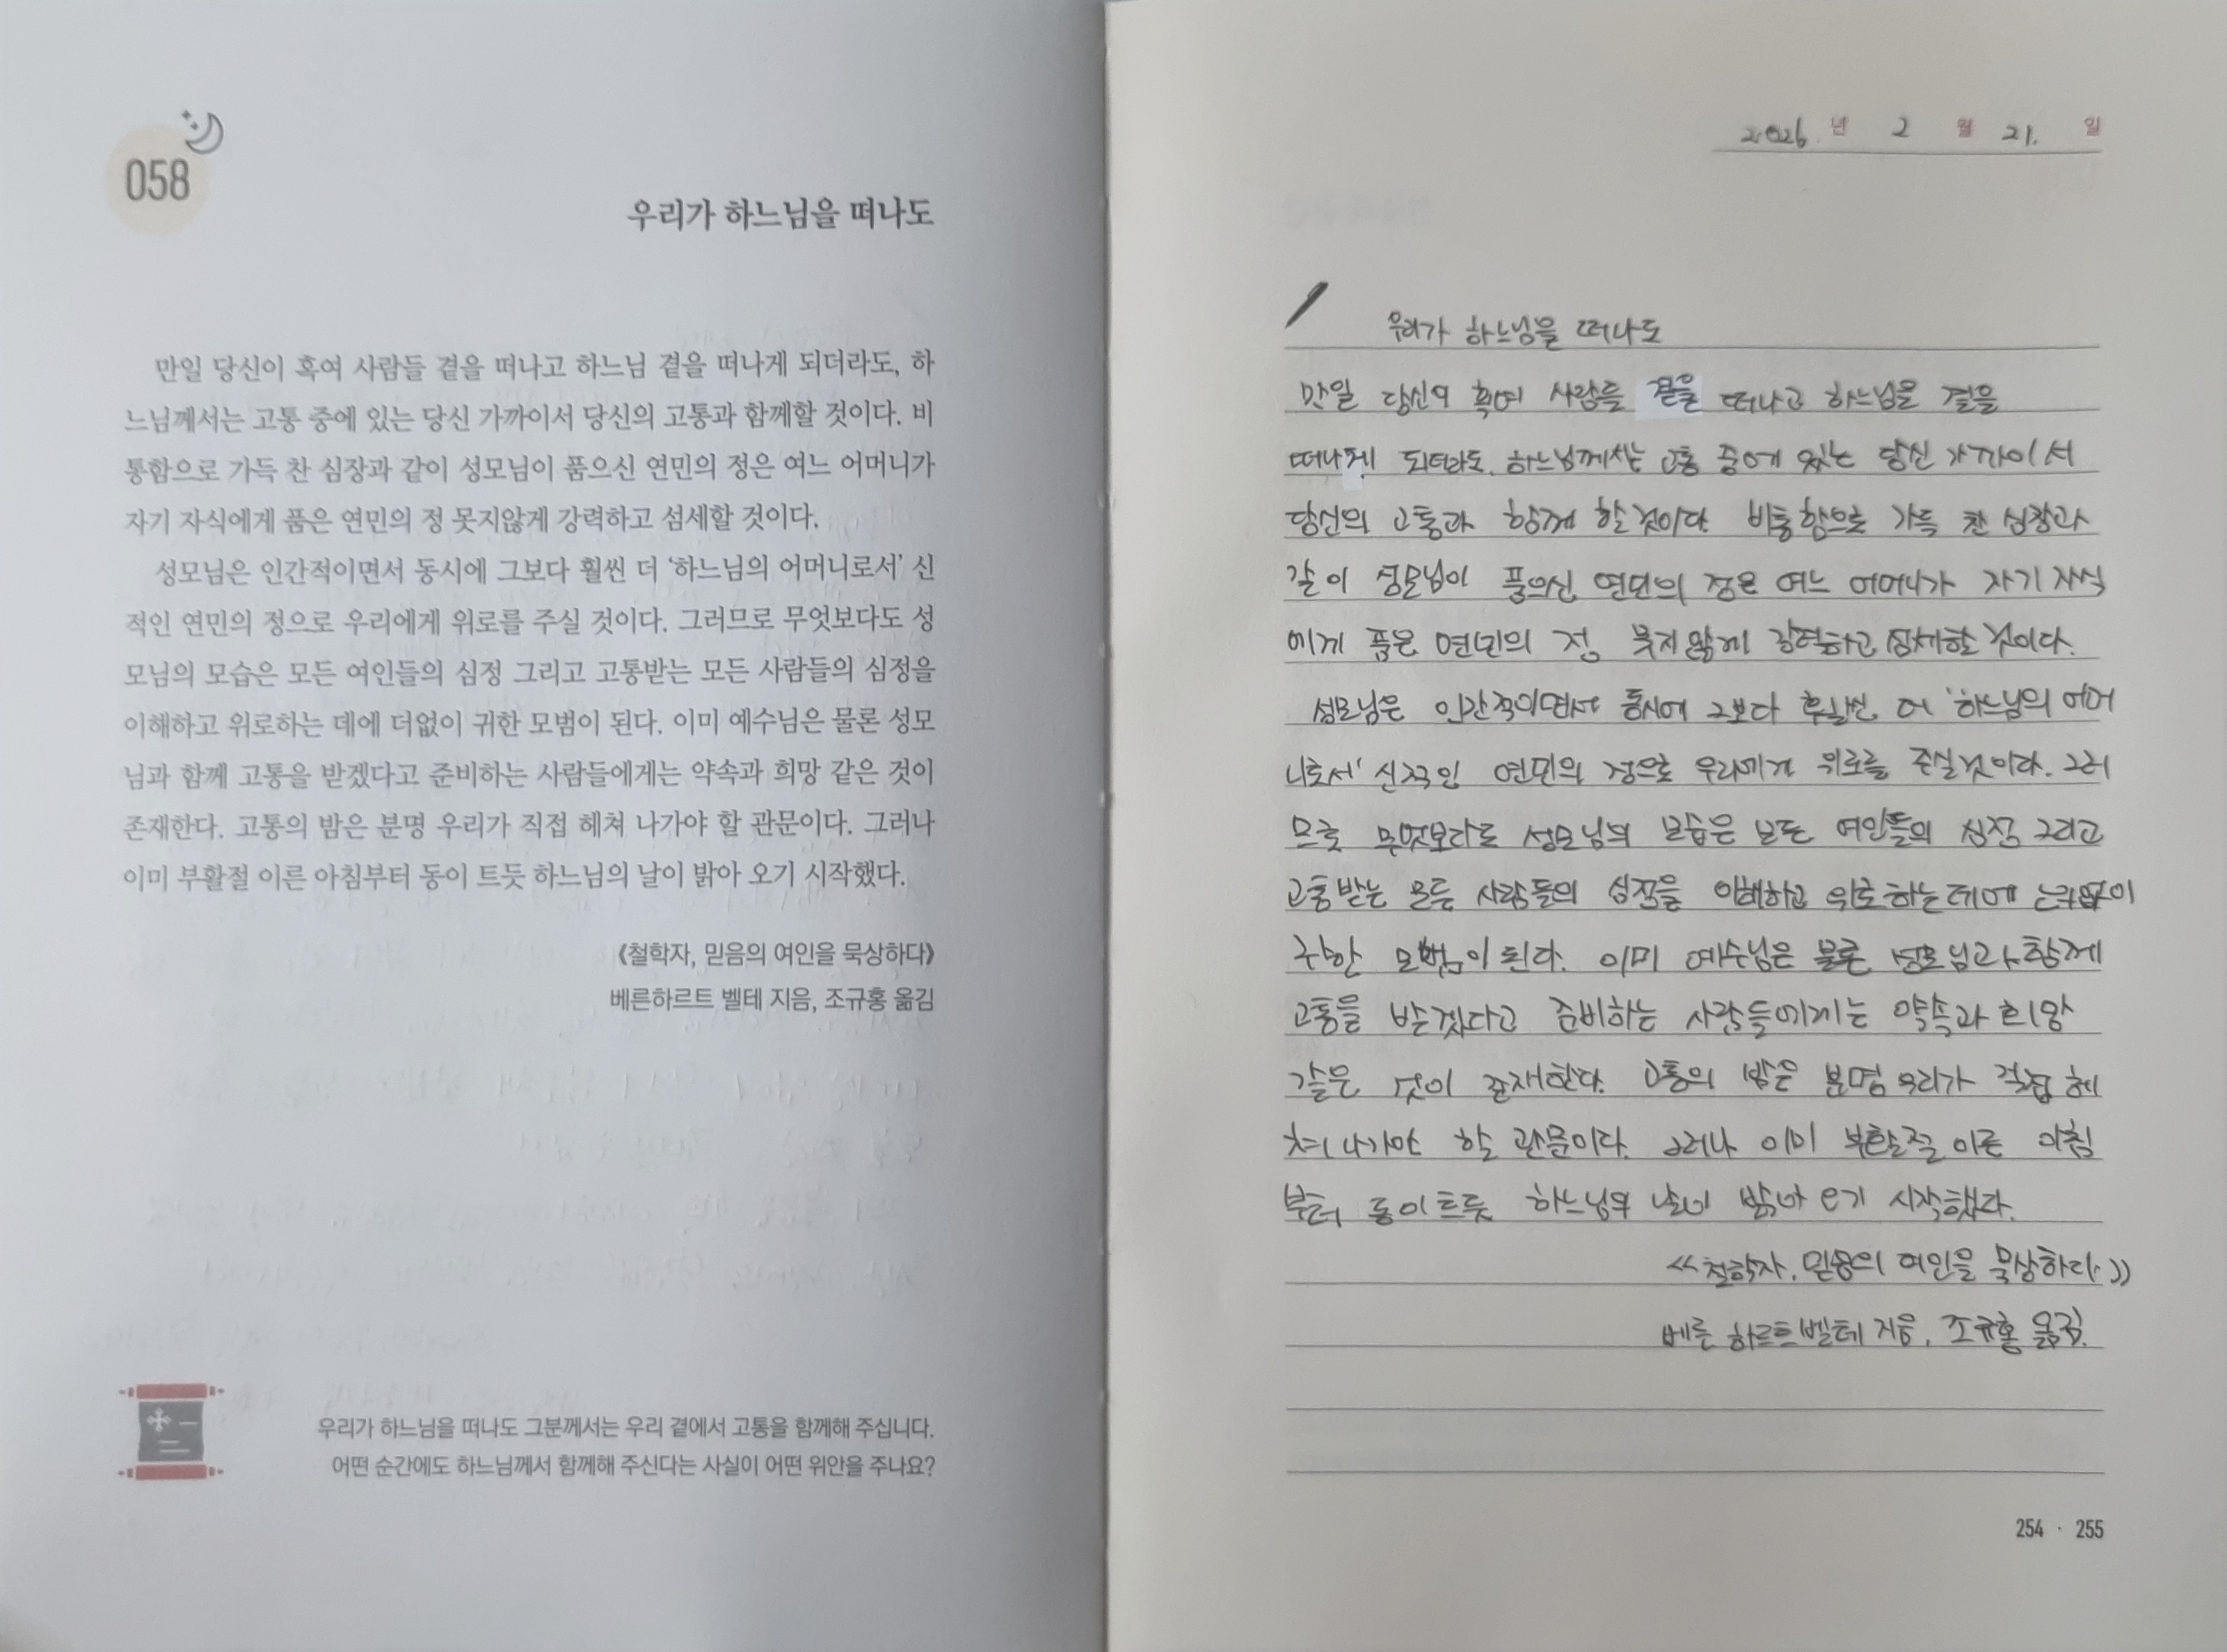 058
우리가 하느님을 떠나도
만일 당신이 혹여 사람들 곁을 떠나고 하느님 곁을 떠나게 되더라도, 하
느님께서는 고통 중에 있는 당신 가까이서 당신의 고통과 함께할 것이다. 비
통함으로 가득 찬 심장과 같이 성모님이 품으신 연민의 정은 여느 어머니가
자기 자식에게 품은 연민의 정 못지않게 강력하고 섬세할 것이다.
성모님은 인간적이면서 동시에 그보다 훨씬 더 ‘하느님의 어머니로서’ 신
적인 연민의 정으로 우리에게 위로를 주실 것이다. 그러므로 무엇보다도 성
모님의 모습은 모든 여인들의 심정 그리고 고통받는 모든 사람들의 심정을
이해하고 위로하는 데에 더없이 귀한 모범이 된다. 이미 예수님은 물론 성모
님과 함께 고통을 받겠다고 준비하는 사람들에게는 약속과 희망 같은 것이
존재한다. 고통의 밤은 분명 우리가 직접 헤쳐 나가야 할 관문이다. 그러나
이미 부활절 이른 아침부터 동이 트듯 하느님의 날이 밝아 오기 시작했다.
《철학자, 믿음의 여인을 묵상하다》
베른하르트 벨테 지음, 조규홍 옮김
우리가 하느님을 떠나도 그분께서는 우리 곁에서 고통을 함께해 주십니다.
어떤 순간에도 하느님께서 함께해 주신다는 사실이 어떤 위안을 주나요?
2026년 2월 21.일
우리가 하느님을 떠나도
만일 당신이 혹여 사람들 곁을 떠나고 하느님을 곁을
떠나게 되더라도, 하느님께서는 고통 중에 있는 당신 가까이서
당신의 고통과 함께 할 것이다. 비통함으로 가득 찬 심장과
같이 성모님이 품으신 연민의 정은 여느 어머니가 자기 자식
에게 품은 연민의 정 못지않게 강력하고 섬세할 것이다.
성모님은 인간적이면서 동시에 그보다 훨씬 더 '하느님의 어머
니로서' 신적인 연민의 정으로 우리에게 위로를 주실 것이다. 그러
므로 무엇보다도 성모님의 모습은 모든 여인들의 심정 그리고
고통받는 모든 사람들의 심정을 이해하고 위로하는데에 더없이
귀한 모범이 된다. 이미 예수님은 물론 성모님과 함께
고통을 받겠다고 준비하는 사람들에게는 약속과 희망
같은 것이 존재한다. 고통의 밤은 분명 우리가 직접 헤
쳐 나가야 할 관문이다. 그러나 이미 부활절 이른 아침
부터 동이 트듯 하느님의 날이 밝아 오기 시작했다.
<<철학자, 믿음의 여인을 묵상하다.>>
베른하르트벨테 지음, 조규홍 옮김.
254 · 255